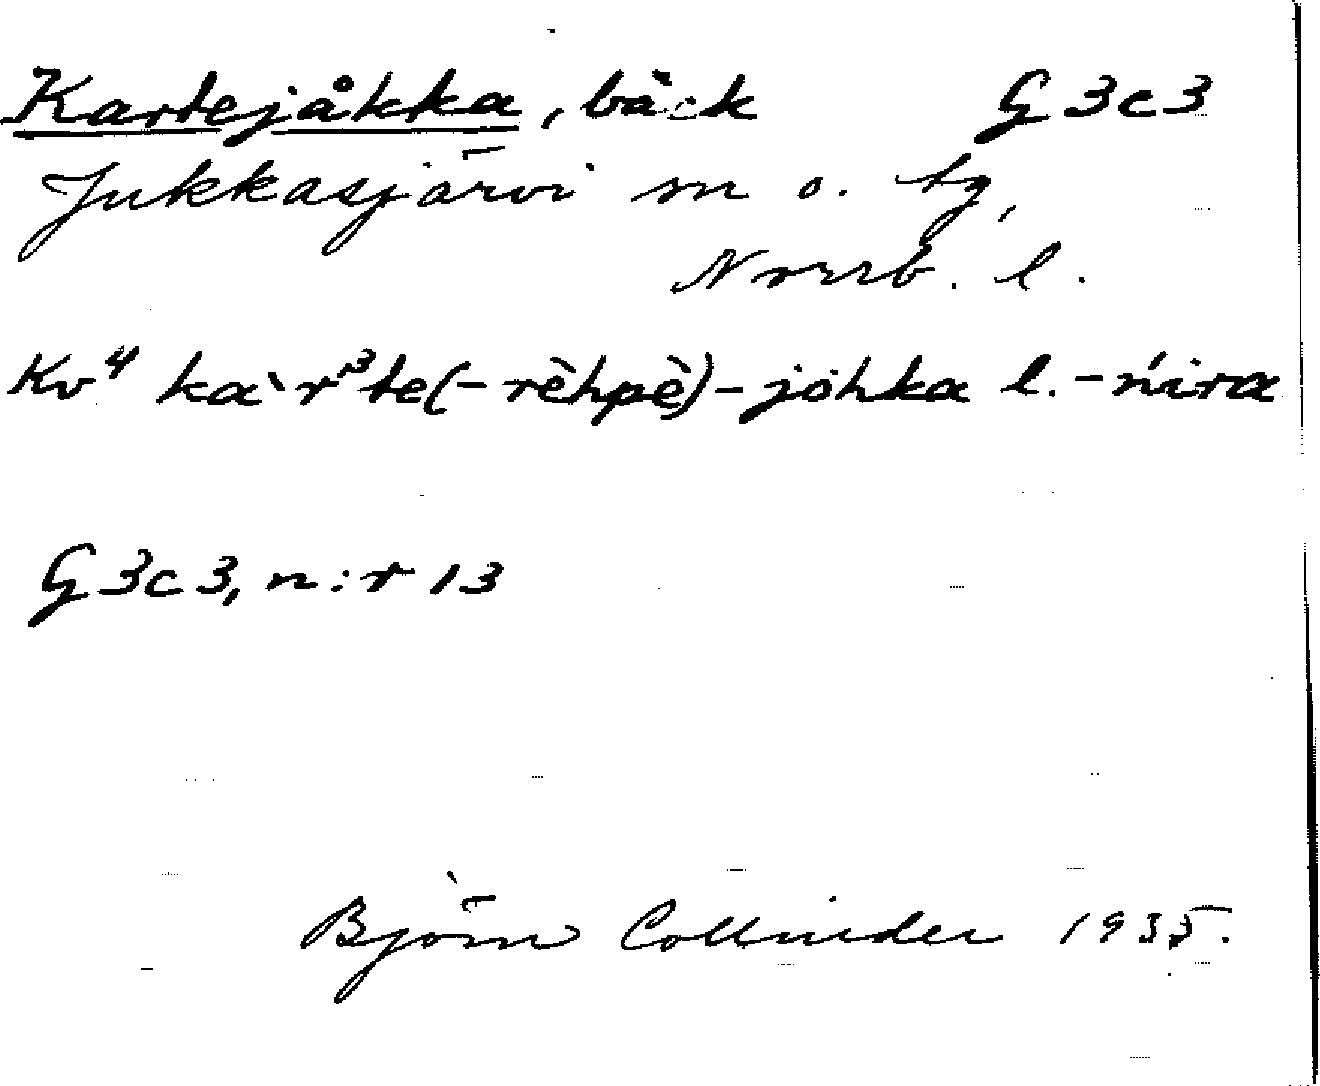 Kartejåkka, bäck G 3c3
Jukkasjärvi sn o. tg,
Norrb. l.
Kv⁴ ka`r³te(-rèhpè)-jòhka l. -ńira
G 3c3, n:r 13
Björn Collinder 1935.